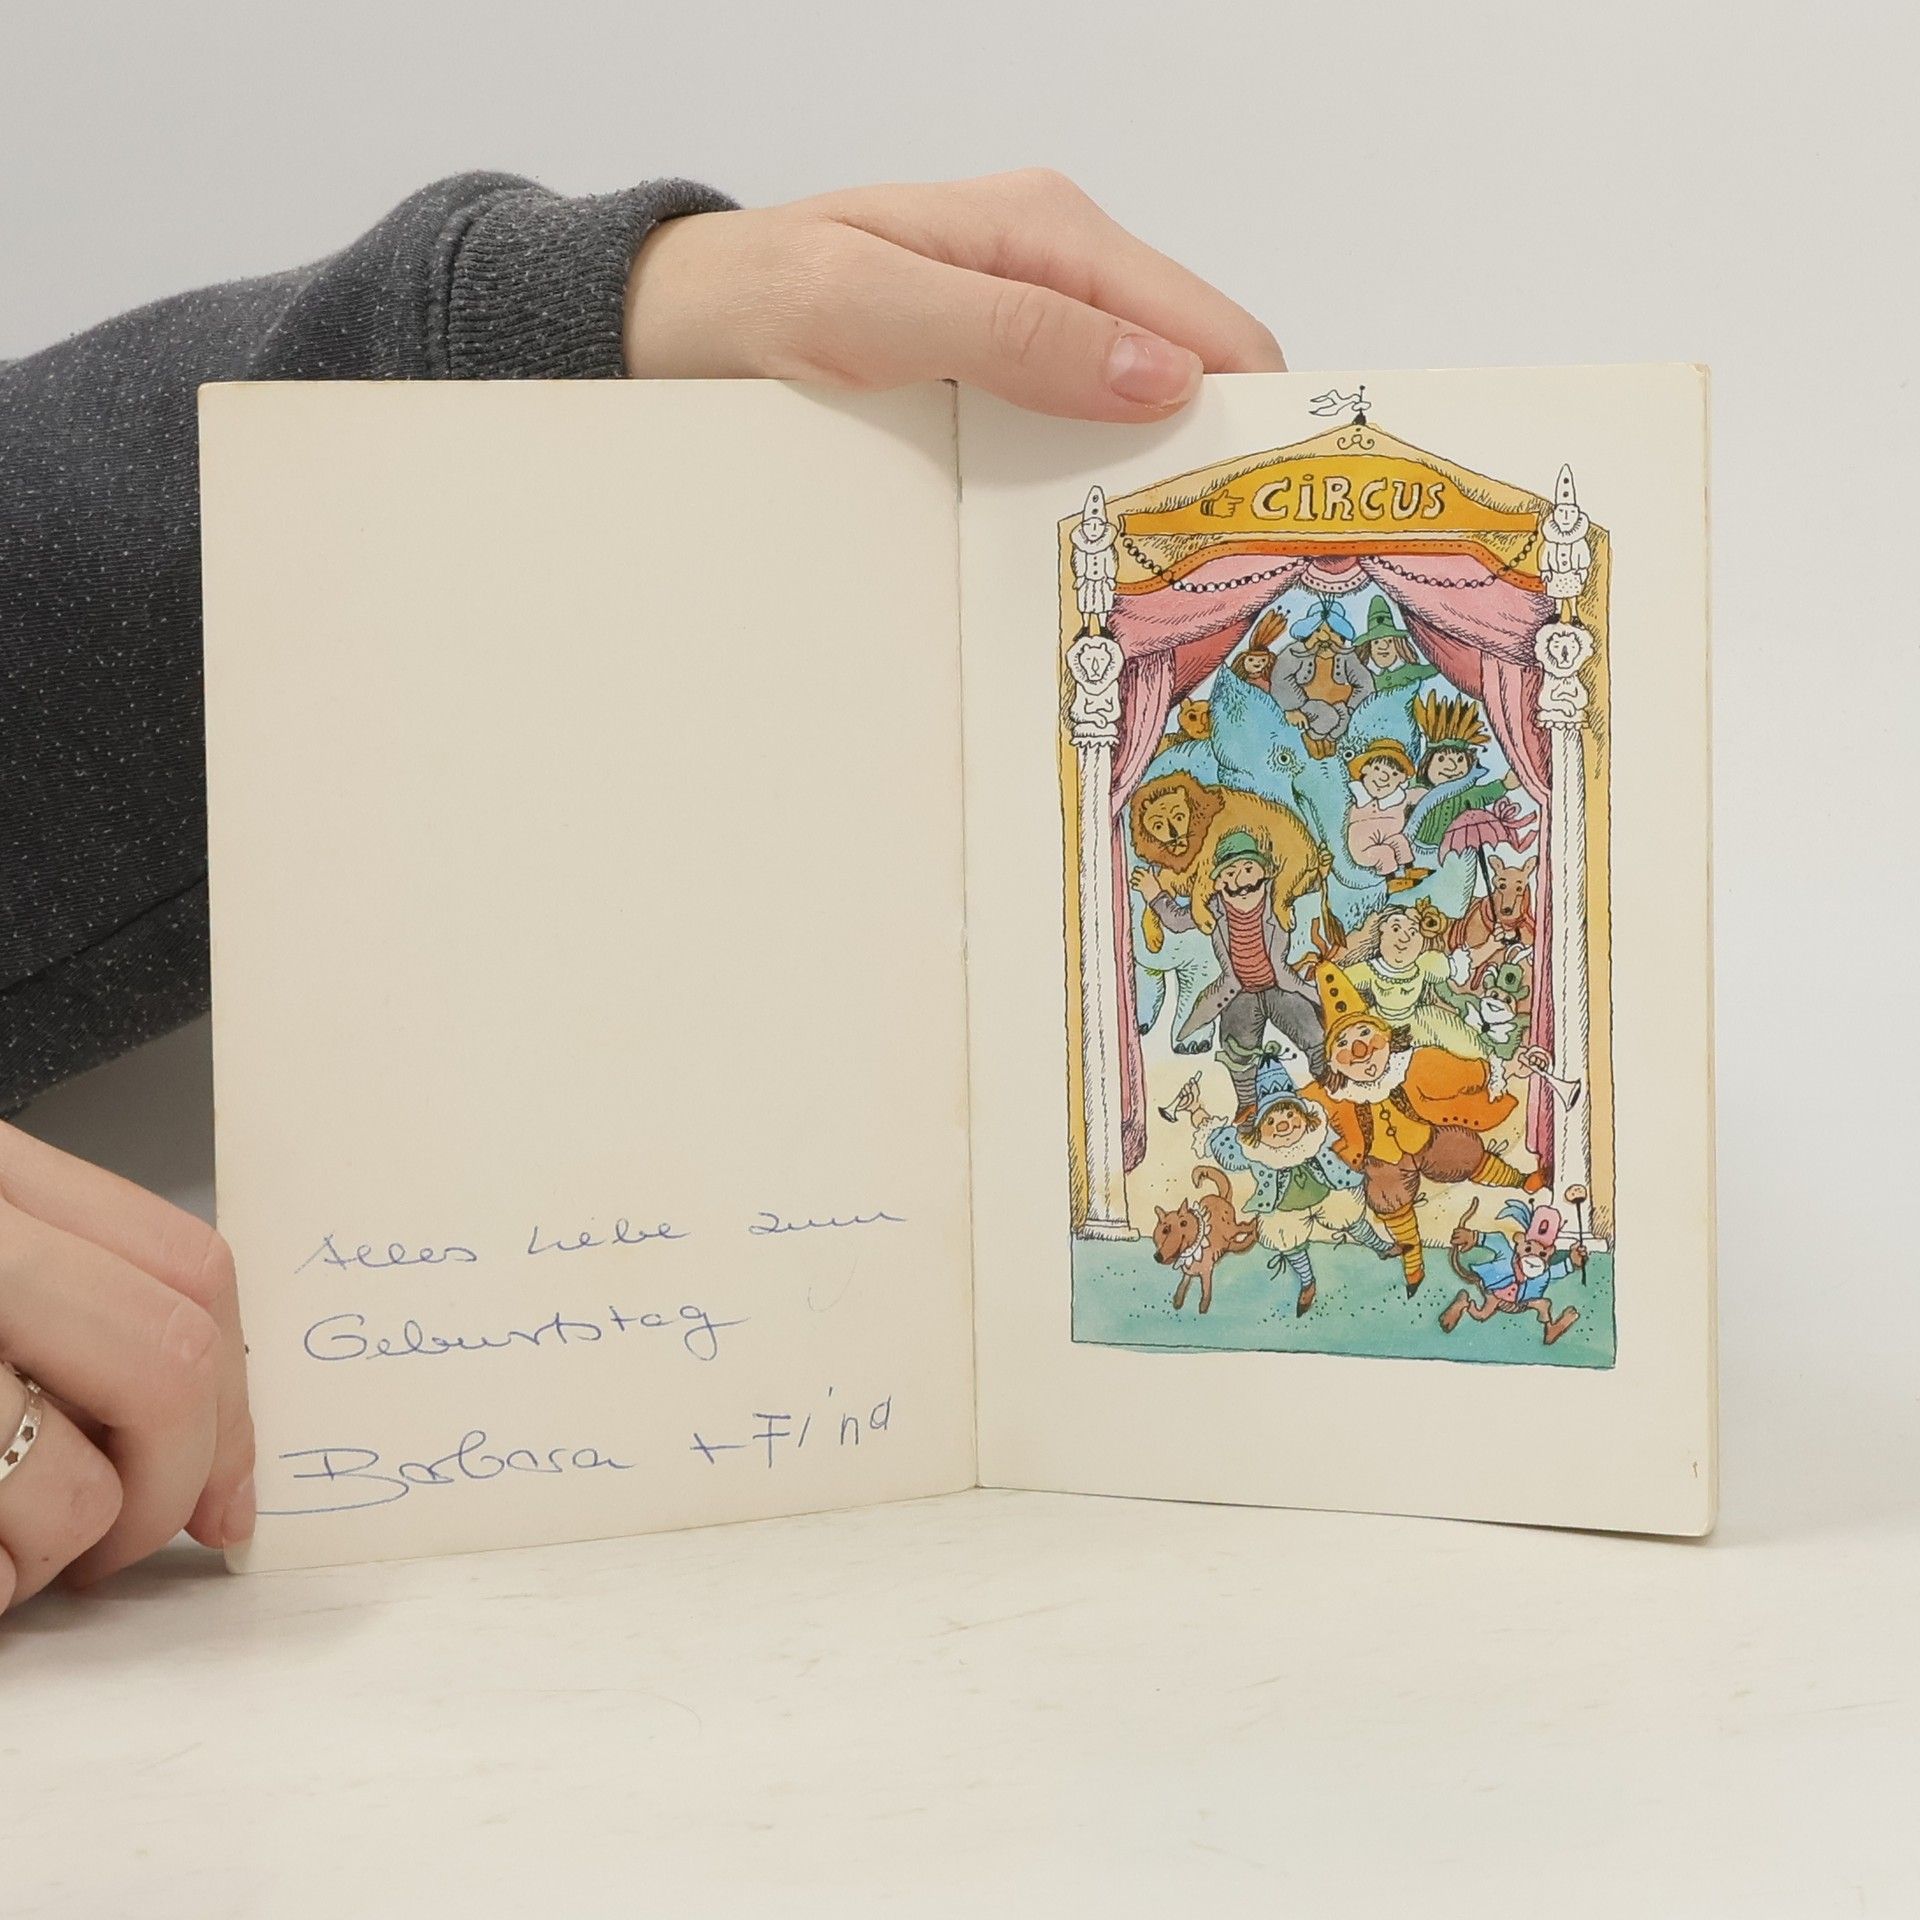 Alles Liebe zum
Geburtstag
Barbara + Find
CiRCUS